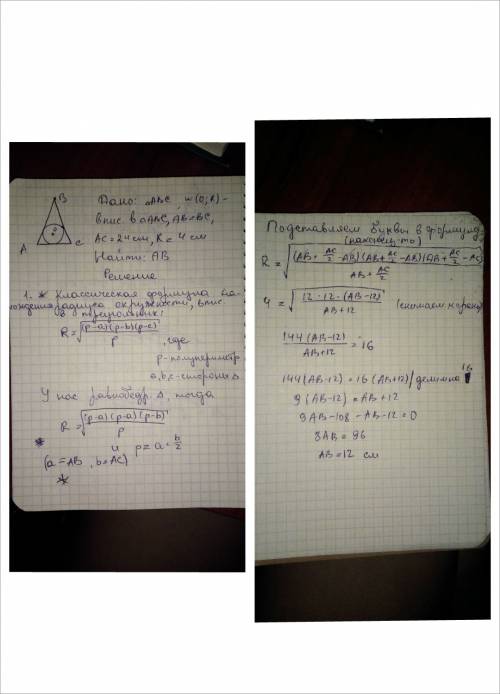 B
A
C
Дано: △ABC, w(O;R) -
впис. в △ABC, AB=BC,
AC=24 см, R=4 см
Найти: AB
Решение
1. * Классическая формула на-
хождения радиуса окружности, впис.
в треугольник:
R=√((p-a)(p-b)(p-c)/p), где
p-полупериметр
a,b,c-стороны △
У нас равнобедр. △, тогда
R=√((p-a)(p-a)(p-b)/p)
и p=a+b/2
* (a=AB, b=AC)
*
Подставляем буквы в формулу
(наконец-то)
R=√((AB+AC/2-AB)(AB+AC/2-AB)(AB+AC/2-AC)/(AB+AC/2))
4=√(12·12·(AB-12)/(AB+12)) (снимаем корень)
144(AB-12)/(AB+12)=16
144(AB-12)=16(AB+12)/делим на 16
9(AB-12)=AB+12
9AB-108-AB-12=0
8AB=96
AB=12 см